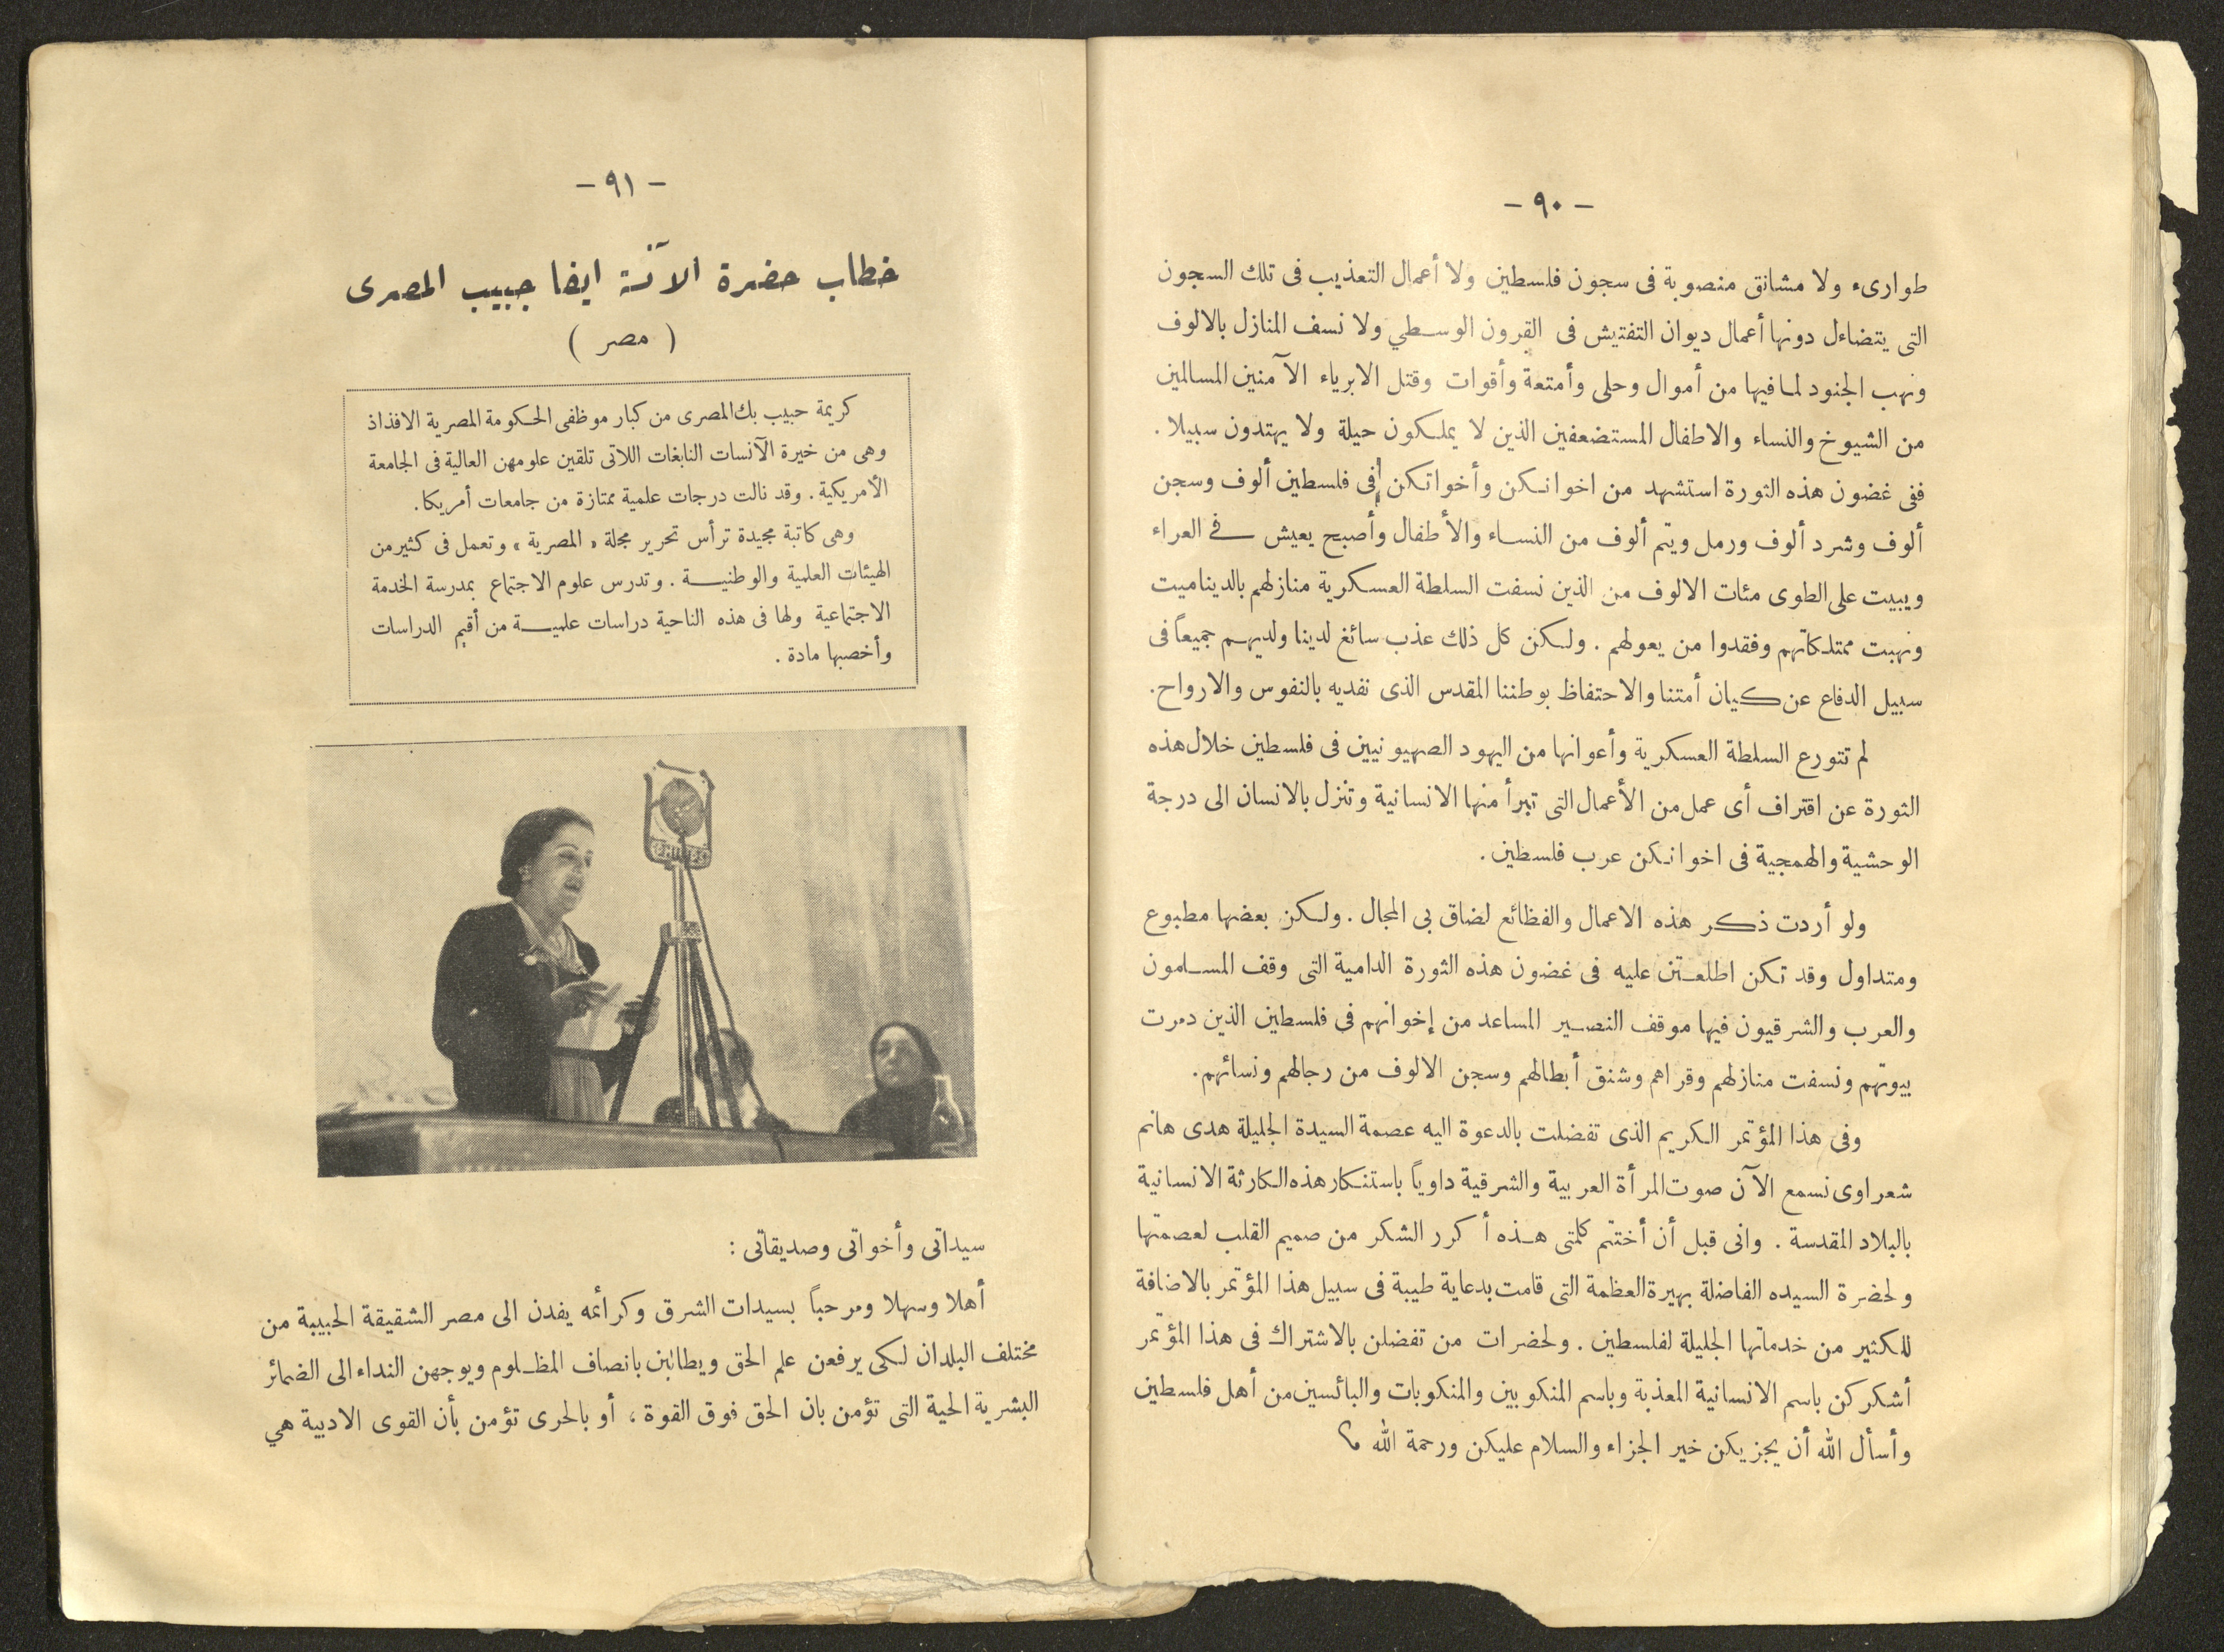 — ٩٠ —
طوارىء ولا مشانق منصوبة فى سجون فلسطين ولا أعمال التعذيب فى تلك السجون
التى يتضاءل دونها أعمال ديوان التفتيش فى القرون الوسطي ولا نسف المنازل بالالوف
ونهب الجنود لمافيها من أموال وحلى وأمتعة وأقوات وقتل الابرياء الآمنين المسالمين
من الشيوخ والنساء والاطفال المستضعفين الذين لا يملكون حيلة ولا يهتدون سبيلا .
ففى غضون هذه الثورة استشهد من اخوانكن وأخواتكن فى فلسطين ألوف وسجن
ألوف وشرد ألوف ورمل ويتم ألوف من النساء والأطفال وأصبح يعيش فى العراء
ويبيت على الطوى مئات الالوف من الذين نسفت السلطة العسكرية منازلهم بالديناميت
ونهبت ممتلكاتهم وفقدوا من يعولهم . ولكن كل ذلك عذب سائغ لدينا ولديهم جميعاً فى
سبيل الدفاع عن كيان أمتنا والاحتفاظ بوطننا المقدس الذى نفديه بالنفوس والارواح .
لم تتورع السلطة العسكرية وأعوانها من اليهود الصهيونيين فى فلسطين خلال هذه
الثورة عن اقتراف أى عمل من الأعمال التى تبرأ منها الانسانية وتنزل بالانسان الى درجة
الوحشية والهمجية فى اخوانكن عرب فلسطين .
ولو أردت ذكر هذه الاعمال والفظائع لضاق بى المجال . ولكن بعضها مطبوع
ومتداول وقد تكن اطلعتن عليه فى غضون هذه الثورة الدامية التى وقف المسلمون
والعرب والشرقيون فيها موقف النصير المساعد من إخوانهم فى فلسطين الذين دمرت
بيوتهم ونسفت منازلهم وقراهم وشنق أبطالهم وسجن الالوف من رجالهم ونسائهم .
وفى هذا المؤتمر الكريم الذى تفضلت بالدعوة اليه عصمة السيدة الجليلة هدى هانم
شعراوى نسمع الآن صوت المرأة العربية والشرقية داوياً باستنكار هذه الكارثة الانسانية
بالبلاد المقدسة . وانى قبل أن أختتم كلمتى هذه أكرر الشكر من صميم القلب لعصمتها
ولحضرة السيده الفاضلة بهيرة العظمة التى قامت بدعاية طيبة فى سبيل هذا المؤتمر بالاضافة
للكثير من خدماتها الجليلة لفلسطين . ولحضرات من تفضلن بالاشتراك فى هذا المؤتمر
أشكركن باسم الانسانية المعذبة وباسم المنكوبين والمنكوبات والبائسين من أهل فلسطين
وأسأل الله أن يجزيكن خير الجزاء والسلام عليكن ورحمة الله
— ٩١ —
خطاب حضرة الآنسة ايفا حبيب المصرى
( مصر )
كريمة حبيب بك المصرى من كبار موظفى الحكومة المصرية الافذاذ
وهى من خيرة الآنسات النابغات اللاتى تلقين علومهن العالية فى الجامعة
الأمريكية . وقد نالت درجات علمية ممتازة من جامعات أمريكا .
وهى كاتبة مجيدة ترأس تحرير مجلة « المصرية » وتعمل فى كثير من
الهيئات العلمية والوطنية . وتدرس علوم الاجتماع بمدرسة الخدمة
الاجتماعية ولها فى هذه الناحية دراسات علمية من أقيم الدراسات
وأخصبها مادة .
سيداتى وأخواتى وصديقاتى :
أهلا وسهلا ومرحباً بسيدات الشرق وكرائمه يفدن الى مصر الشقيقة الحبيبة من
مختلف البلدان لكى يرفعن علم الحق ويطالبن بانصاف المظلوم ويوجهن النداء الى الضمائر
البشرية الحية التى تؤمن بان الحق فوق القوة ، أو بالحرى تؤمن بأن القوى الادبية هي